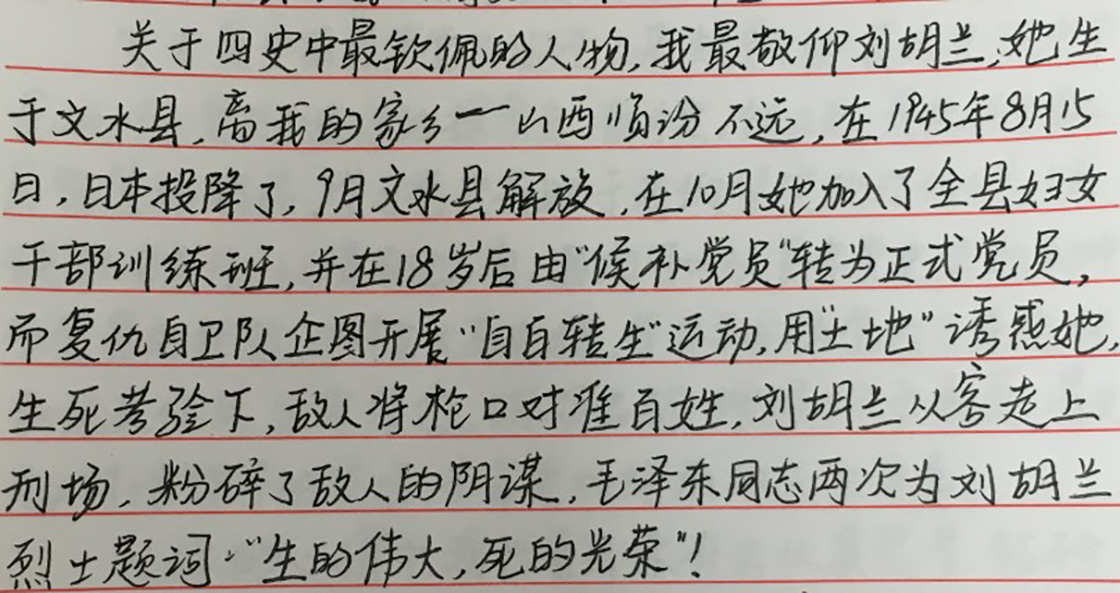 关于四史中最钦佩的人物,我最敬仰刘胡兰,她生
于文水县,离我的家乡一山西临汾不远,在1945年8月15
日,日本投降了,9月文水县解放,在10月她加入了全县妇女
干部训练班,并在18岁后由“候补党员”转为正式党员,
而复仇自卫队企图开展“自白转生”运动,用“土地”诱惑她,
生死考验下,敌人将枪口对准百姓,刘胡兰从容走上
刑场,粉碎了敌人的阴谋,毛泽东同志两次为刘胡兰
烈士题词:“生的伟大,死的光荣”!